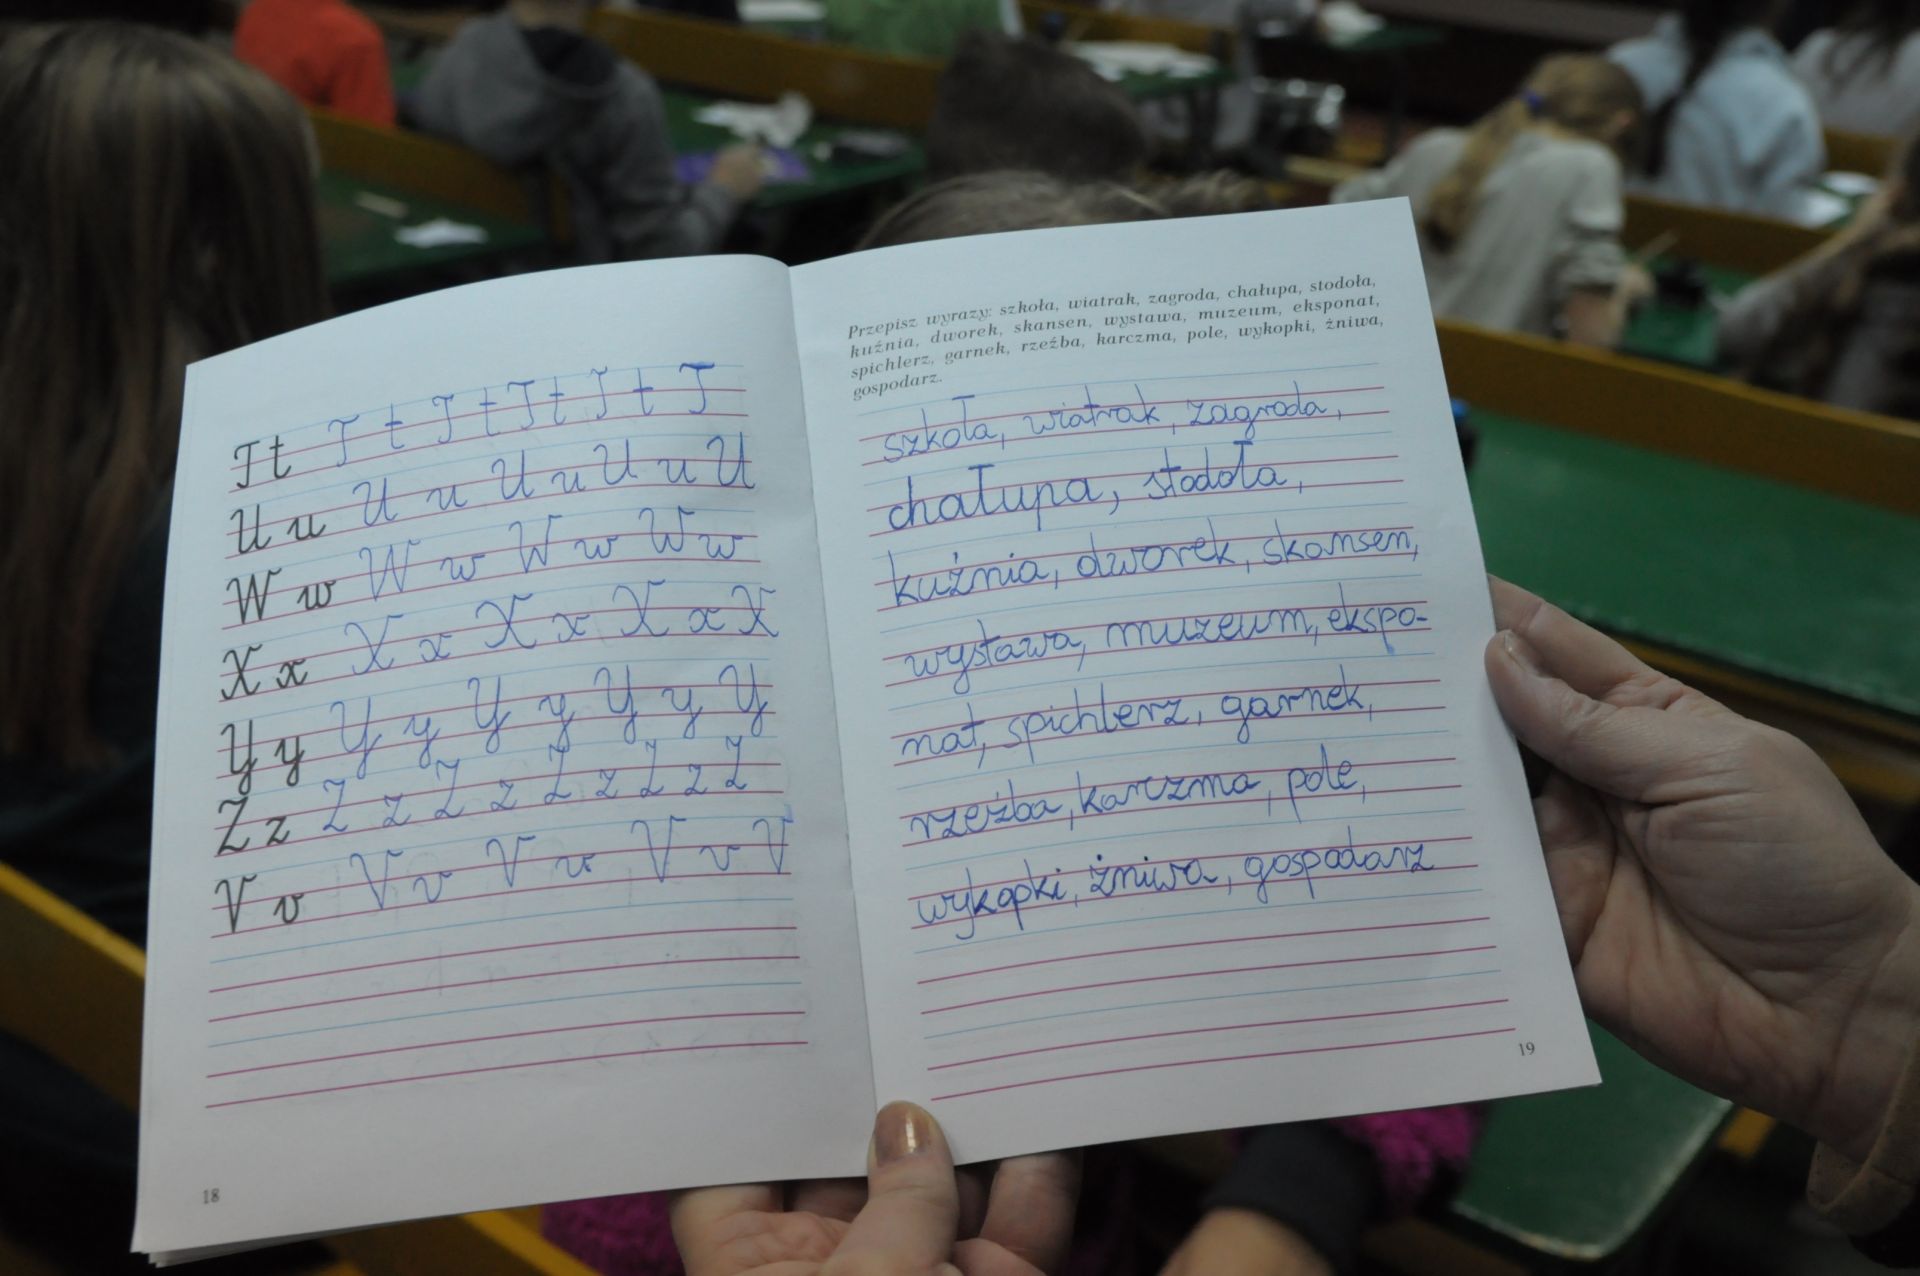 T t T t T t T t T t T
U u U u U u U u U
W w W w W w W w
X x X x X x X x X
Y y Y y Y y Y y Y y Y
Z z Z z Z z Z z Z z Z
V v V v V v V v V
18
Przepisz wyrazy: szkoła, wiatrak, zagroda, chałupa, stodoła,
kuźnia, dworek, skansen, wystawa, muzeum, eksponat,
spichlerz, garnek, rzeźba, karczma, pole, wykopki, żniwa,
gospodarz.
szkoła, wiatrak, zagroda,
chałupa, stodoła,
kuźnia, dworek, skansen,
wystawa, muzeum, ekspo-
nat, spichlerz, garnek,
rzeźba, karczma, pole,
wykopki, żniwa, gospodarz
19